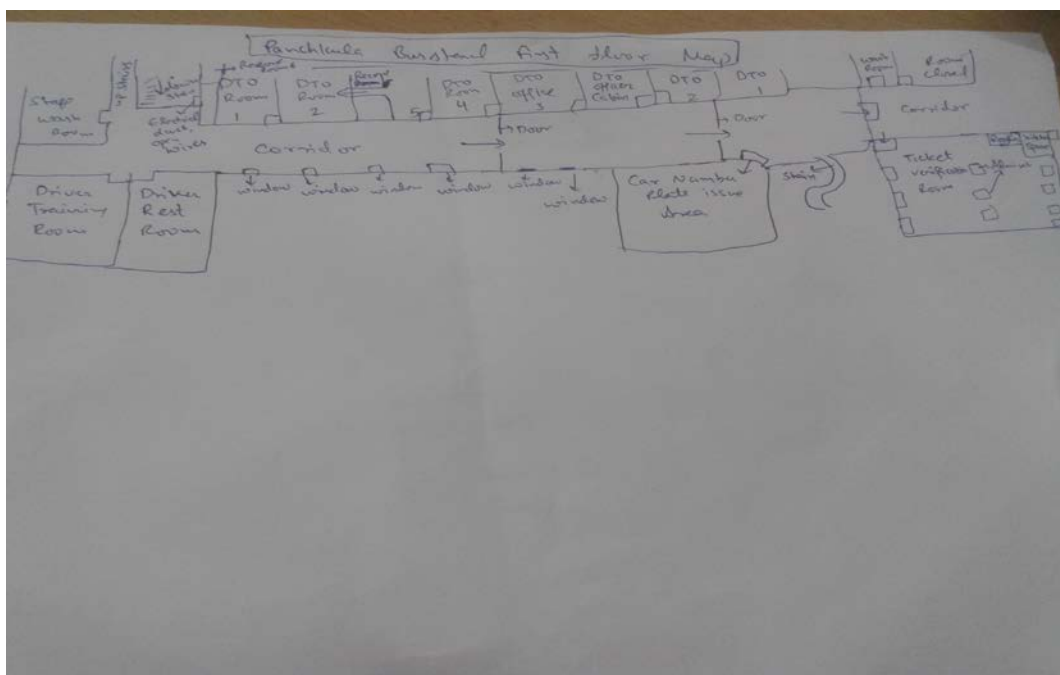 Panchkula Busstand First floor Map
Staff
wash
Room
DTO
Room
1
DTO
Room
2
Record
Room
5
DTO
Room
4
DTO
office
3
DTO
Cabin
DTO
2
DTO
1
wash
Room
Room
Closed
Corridor
Door
Door
Corridor
Driver
Training
Room
Driver
Rest
Room
window
window
window
window
window
window
Car Number
Plate issue
Area
Stairs
Ticket
verification
Room